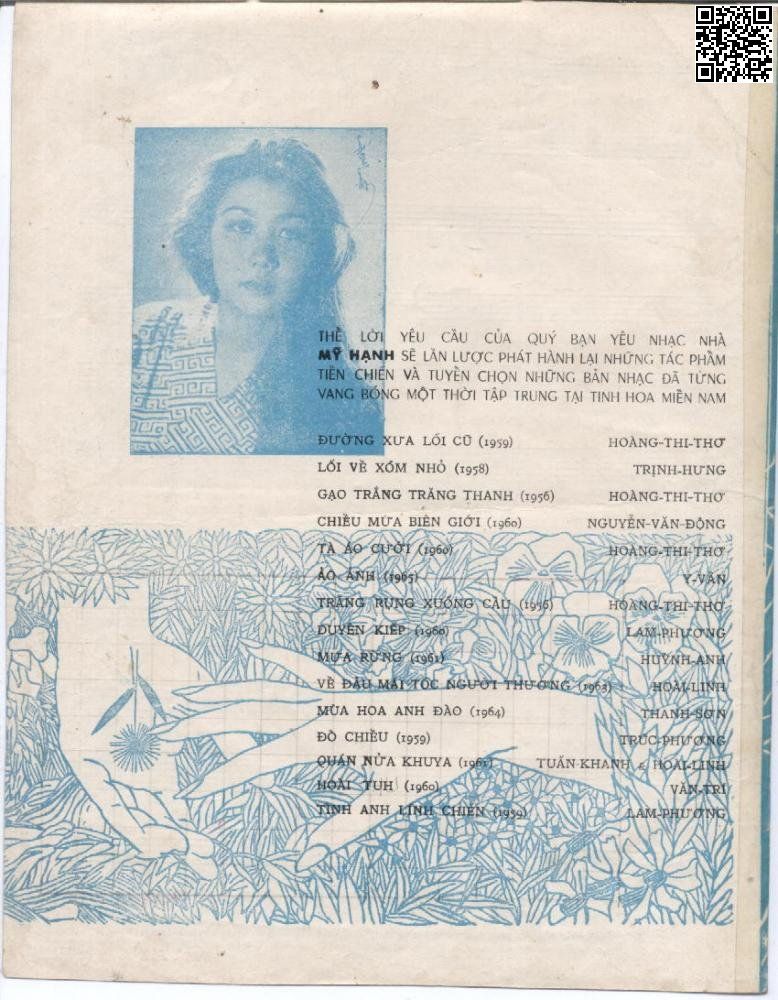 THỂ LỜI YÊU CẦU CỦA QUÝ BẠN YÊU NHẠC NHÀ
MỸ HẠNH SẼ LẦN LƯỢC PHÁT HÀNH LẠI NHỮNG TÁC PHẨM
TIỀN CHIẾN VÀ TUYỂN CHỌN NHỮNG BẢN NHẠC ĐÃ TỪNG
VANG BÓNG MỘT THỜI TẬP TRUNG TẠI TINH HOA MIỀN NAM
ĐƯỜNG XƯA LỐI CŨ (1959) HOÀNG-THI-THƠ
LỐI VỀ XÓM NHỎ (1958) TRỊNH-HƯNG
GẠO TRẮNG TRĂNG THANH (1956) HOÀNG-THI-THƠ
CHIỀU MƯA BIÊN GIỚI (1960) NGUYỄN-VĂN-ĐÔNG
TÀ ÁO CƯỚI (1960) HOÀNG-THI-THƠ
ẢO ẢNH (1965) Y-VÂN
TRĂNG RỤNG XUỐNG CẦU (1956) HOÀNG-THI-THƠ
DUYÊN KIẾP (1960) LAM-PHƯƠNG
MƯA RỪNG (1961) HUỲNH-ANH
VỀ ĐÂU MÁI TÓC NGƯỜI THƯƠNG (1963) HOÀI-LINH
MÙA HOA ANH ĐÀO (1964) THANH-SƠN
ĐÒ CHIỀU (1959) TRÚC-PHƯƠNG
QUÁN NỬA KHUYA (1961) TUẤN-KHANH & HOÀI-LINH
HOÀI TUH (1960) VĂN-TRÍ
TÌNH ANH LÍNH CHIẾN (1959) LAM-PHƯƠNG